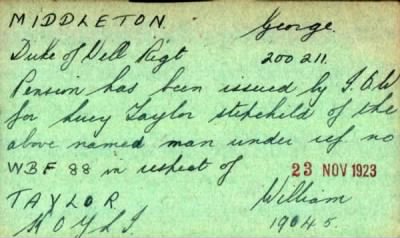 MIDDLETON. George.
Duke of Well Regt 200211.
Pension has been issued by S.A.W
for Lucy Taylor stepchild of the
above named man under ref no
WBF 88 in respect of 23 NOV 1923
TAYLOR William
KOYLI 19045.